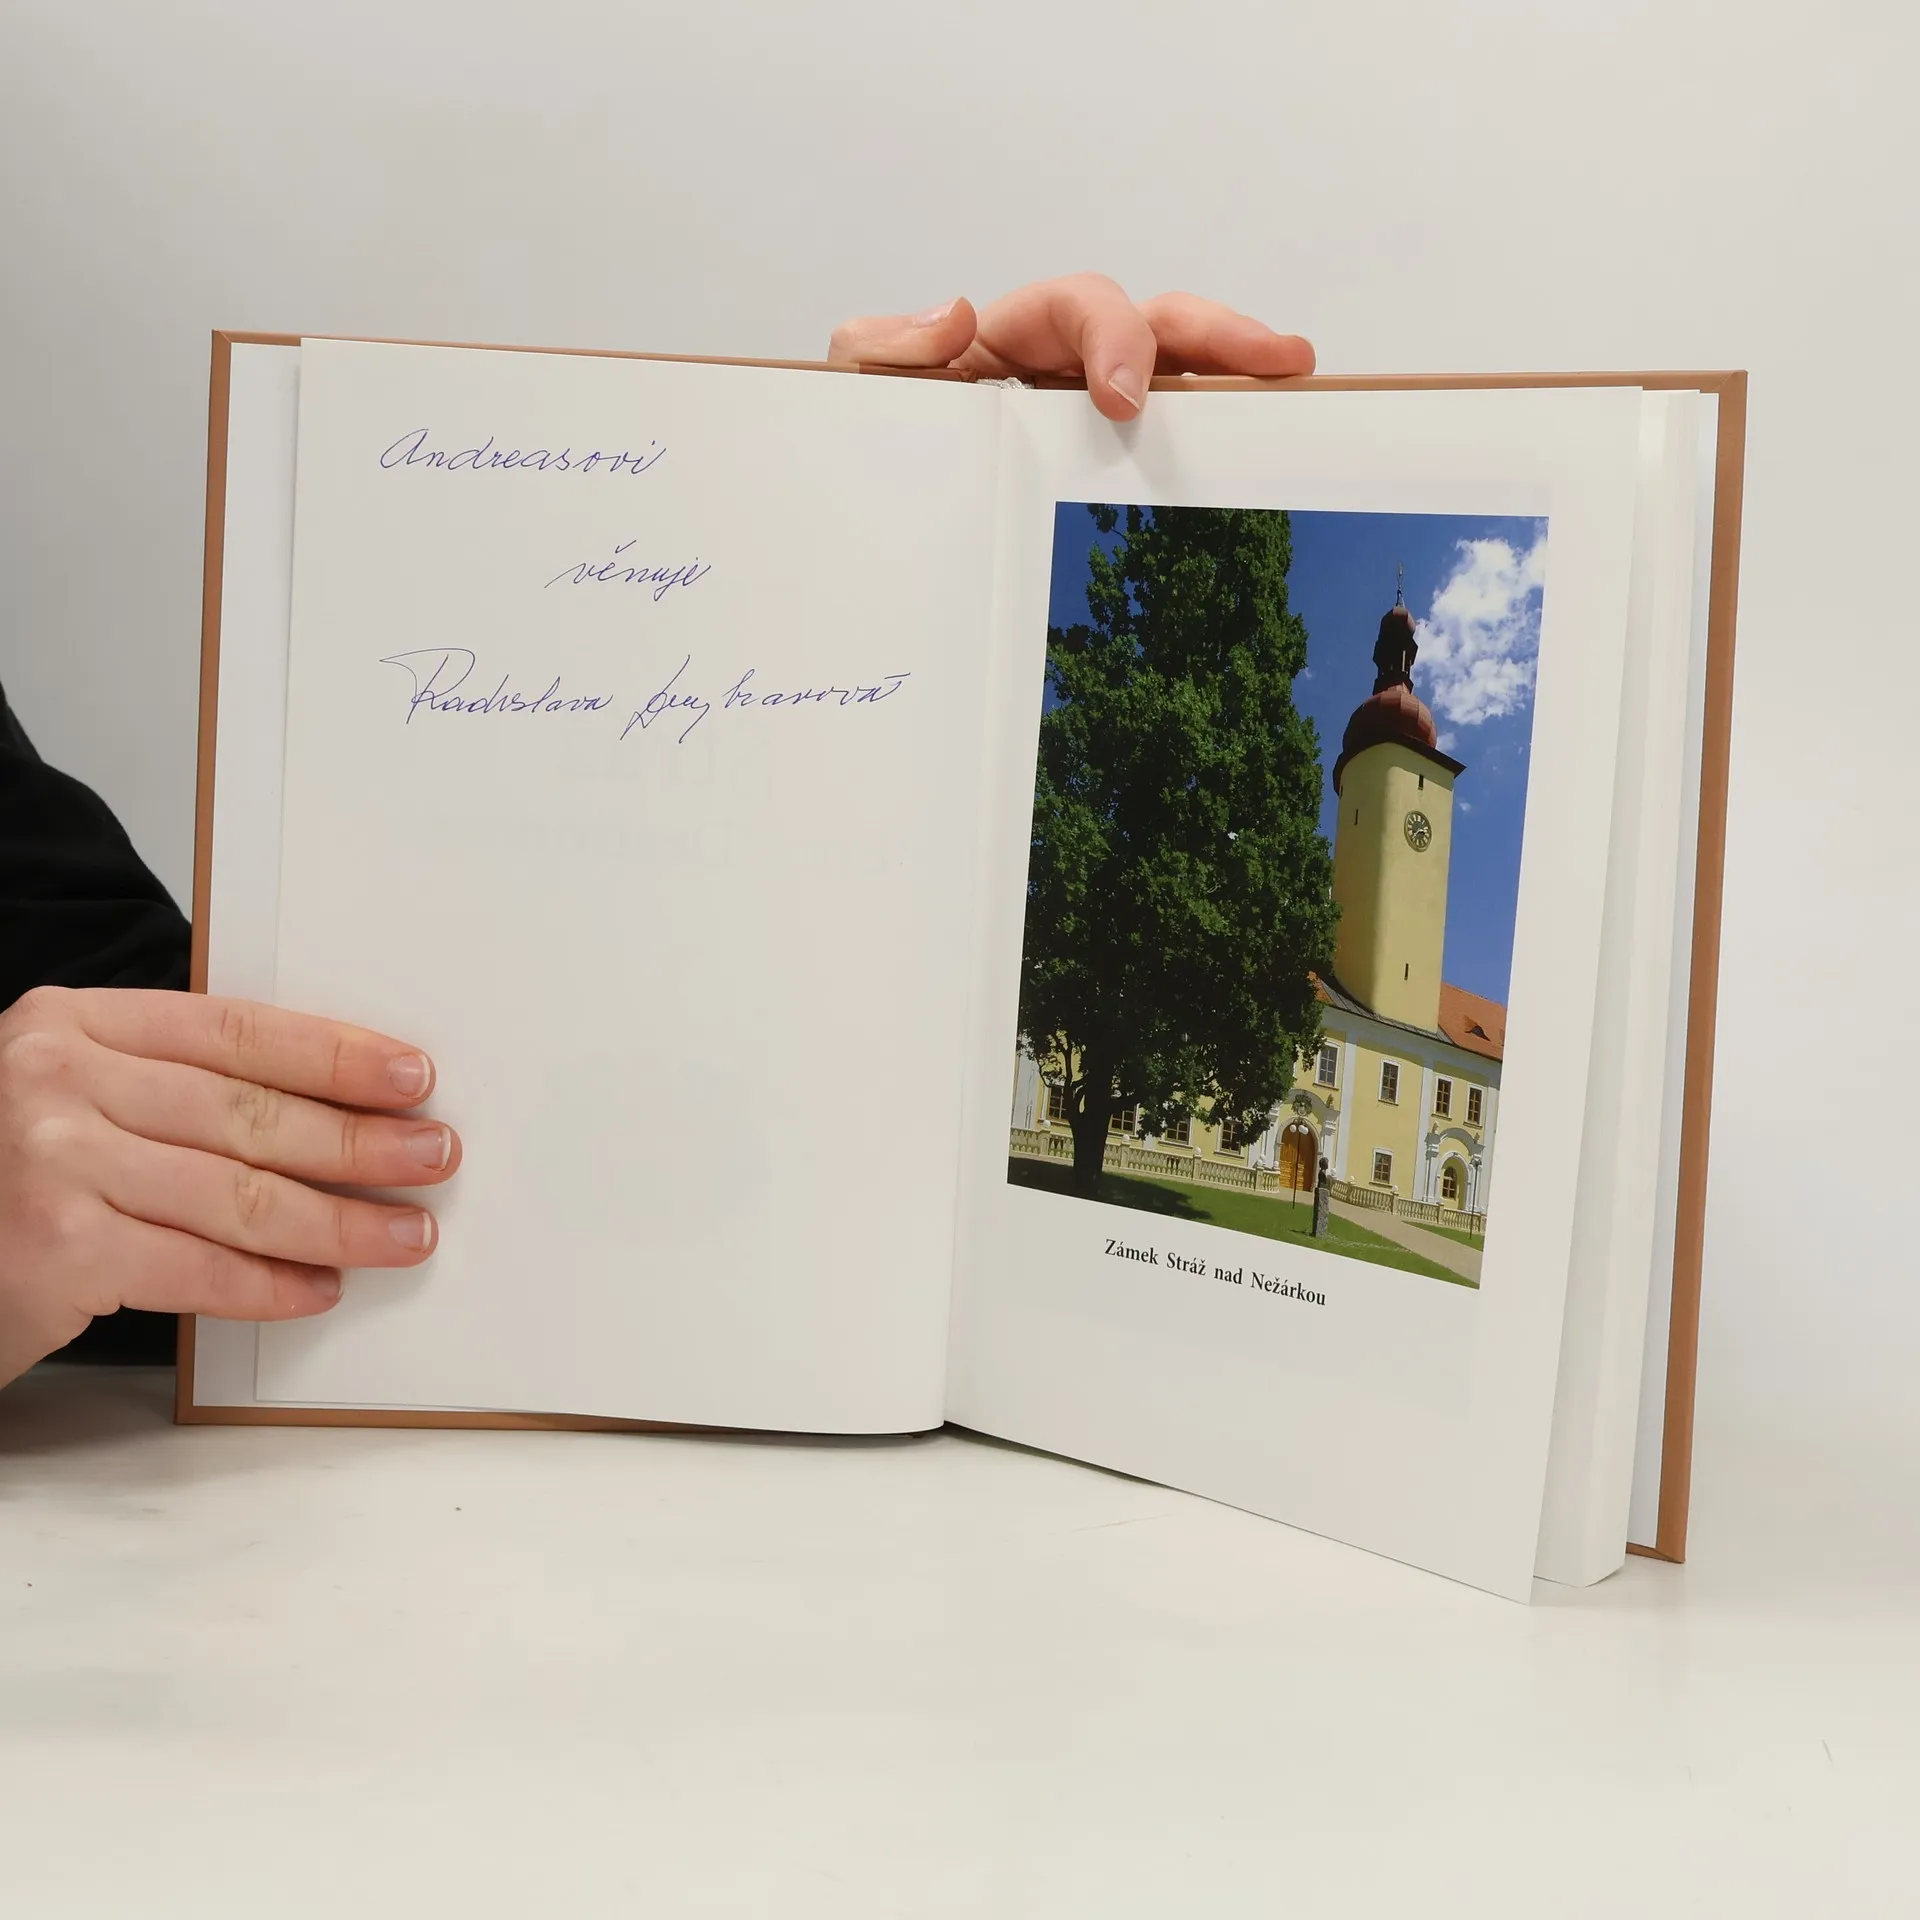 Andreasovi
věnuje
Radislava
Zámek Stráž nad Nežárkou